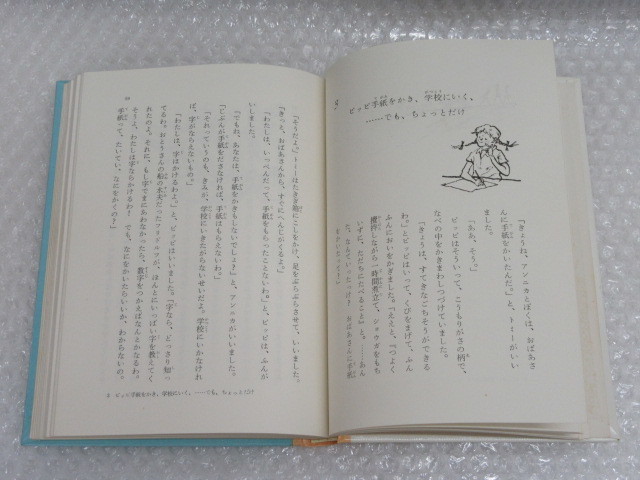 3
ピッピ手紙をかき、学校にいく、
……でも、ちょっとだけ
「きょうね、アンニカとぼくは、おばあさ
んに手紙をかいたんだ。」と、トミーがいい
ました。
「ああ、そう。」
ピッピはそういって、こうもりがさの柄で、
なべの中をかきまわしつづけていました。
「きょうは、すてきなごちそうができる
わ。」とピッピはいって、くびをまげて、ふん
ふんにおいをかぎました。「ええと。『つよく
攪拌しながら一時間煮立て、ショウガをもち
いずに、ただちにたべること』と。——あん
た、なんていったっけ？ おばあさんに手紙
「そうだよ。」トミーはたきぎ箱にこしをかけ、足をぶらぶらさせて、いいました。
「きっと、おばあさんから、すぐにへんじがくるよ。」
「わたしは、いっぺんだって、手紙をもらったことないわ。」と、ピッピは、ふんが
いしました。
「でもね、あなたは、手紙をかきもしないでしょ？」と、アンニカがいいました。
「じぶんが手紙をださなければ、手紙はもらえないわ。」
「それっていうのも、きみが、学校にいきたがらないせいだよ。学校にいかなけれ
ば、字がならえないもの。」
「わたしは、字はかけるわよ。」と、ピッピはいいました。「字なら、どっさり知っ
てるわ。おとうさんの船の水夫だったフリドルフが、ほんとにいっぱい字を教えてく
れたのよ。それに、もし字でまにあわなかったら、数字をつかえばなんとかなるわ。
そうよ、わたしは字ならかけるわ！ でも、なにをかいたらいいか、わからないの。
手紙って、たいてい、なにをかくの？」
3 ピッピ手紙をかき、学校にいく、——でも、ちょっとだけ